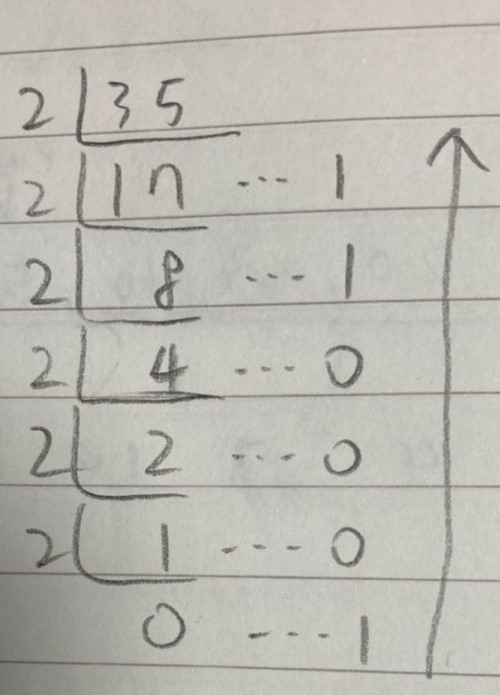 2 35
2 17 ... 1
2 8 ... 1
2 4 ... 0
2 2 ... 0
2 1 ... 0
0 ... 1